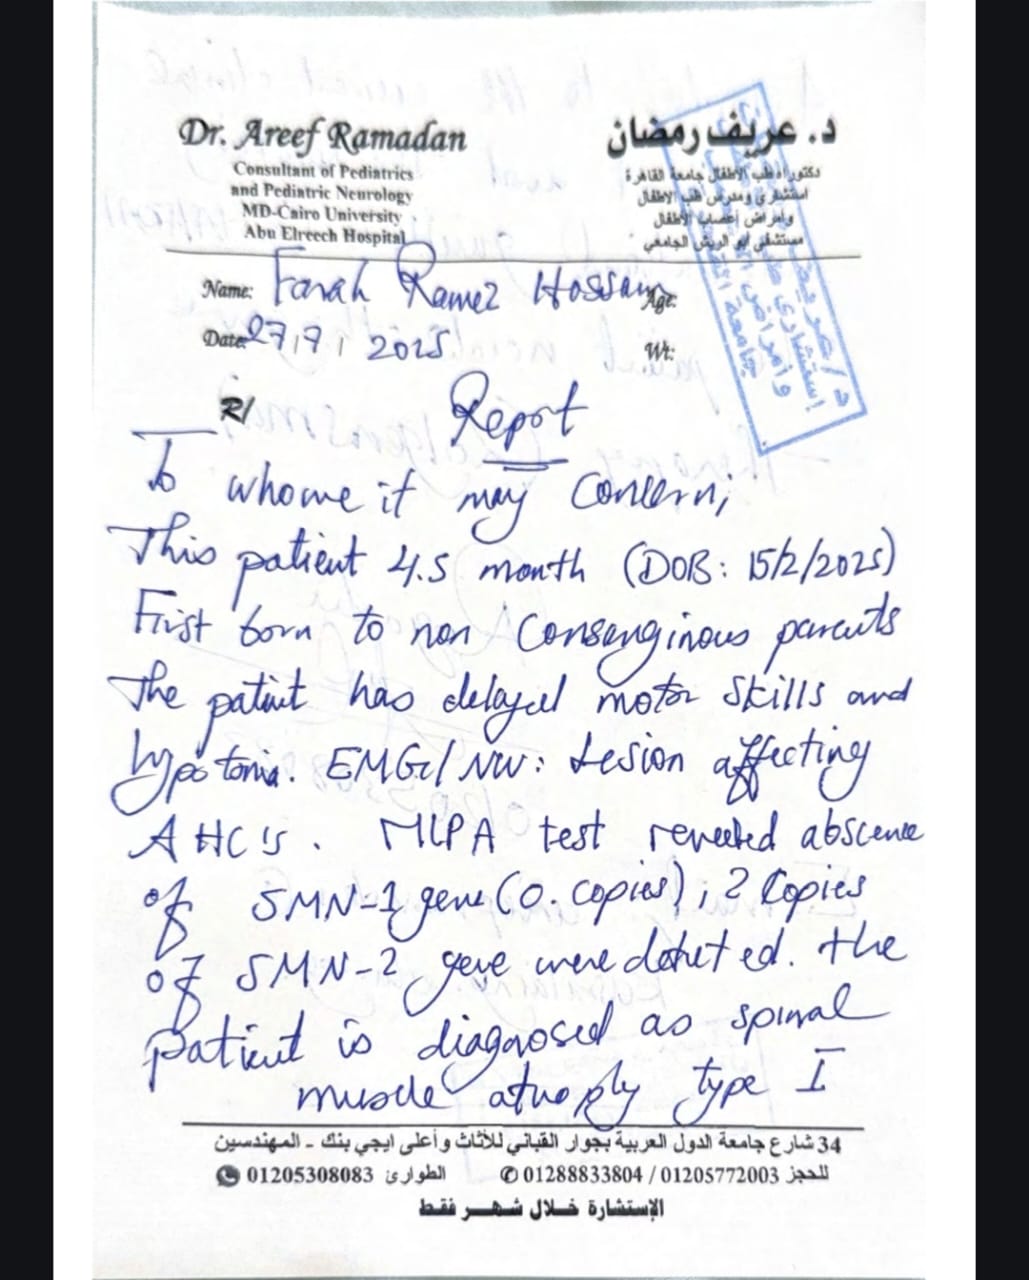 Dr. Areef Ramadan
Consultant of Pediatrics
and Pediatric Neurology
MD-Cairo University
Abu Elreech Hospital
د. عريف رمضان
دكتوراه طب الأطفال جامعة القاهرة
استشاري ومدرس طب الاطفال
وامراض أعصاب الأطفال
مستشفى ابو الريش الجامعي
Name: Farah Ramez Hossam Age:
Date: 27/7/2025 Wt:
R/ Report
To whome it may Concern;
This patient 4.5 month (DOB: 15/2/2025)
First born to non Consenginous parents
The patient has delayed motor skills and
hypotonia. EMG/NCV: Lesion affecting
AHC's. MLPA test reveeled abscence
of SMN-1 gene (0. copies), 2 Copies
of SMN-2 gene were detected. the
patient is diagnosed as spinal
muscle atrophy type I
34 شارع جامعة الدول العربية بجوار القباني للأثاث وأعلى ايجي بنك - المهندسين
للحجز 01205772003 / 01288833804 الطوارئ 01205308083
الإستشارة خلال شهر فقط